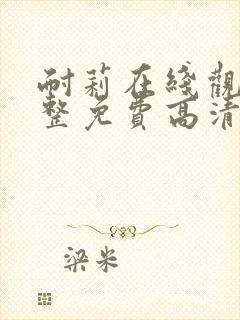 耐莉在綫觀
整免費高清
梁米